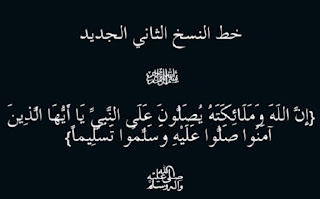 خط النسخ الثاني الجديد
{إِنَّ اللَهَ وَمَلَائِكَتَهُ يُصَلُّونَ عَلَى النَّبِيِّ يَا أَيُّهَا الَّذِينَ
آمَنُوا صَلُّوا عَلَيْهِ وَسَلِّمُوا تَسْلِيمًا}
صلى الله عليه وآله وسلم